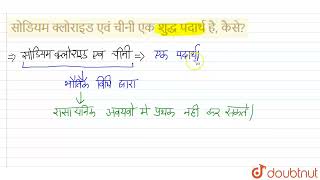 सोडियम क्लोराइड एवं चीनी एक शुद्ध पदार्थ है, कैसे?
⇒ सोडियम क्लोराइड एवं चीनी ⇒ एक पदार्थ
भौतिक विधि द्वारा
रासायनिक अवयवों में पृथक नहीं कर सकते।
doubtnut